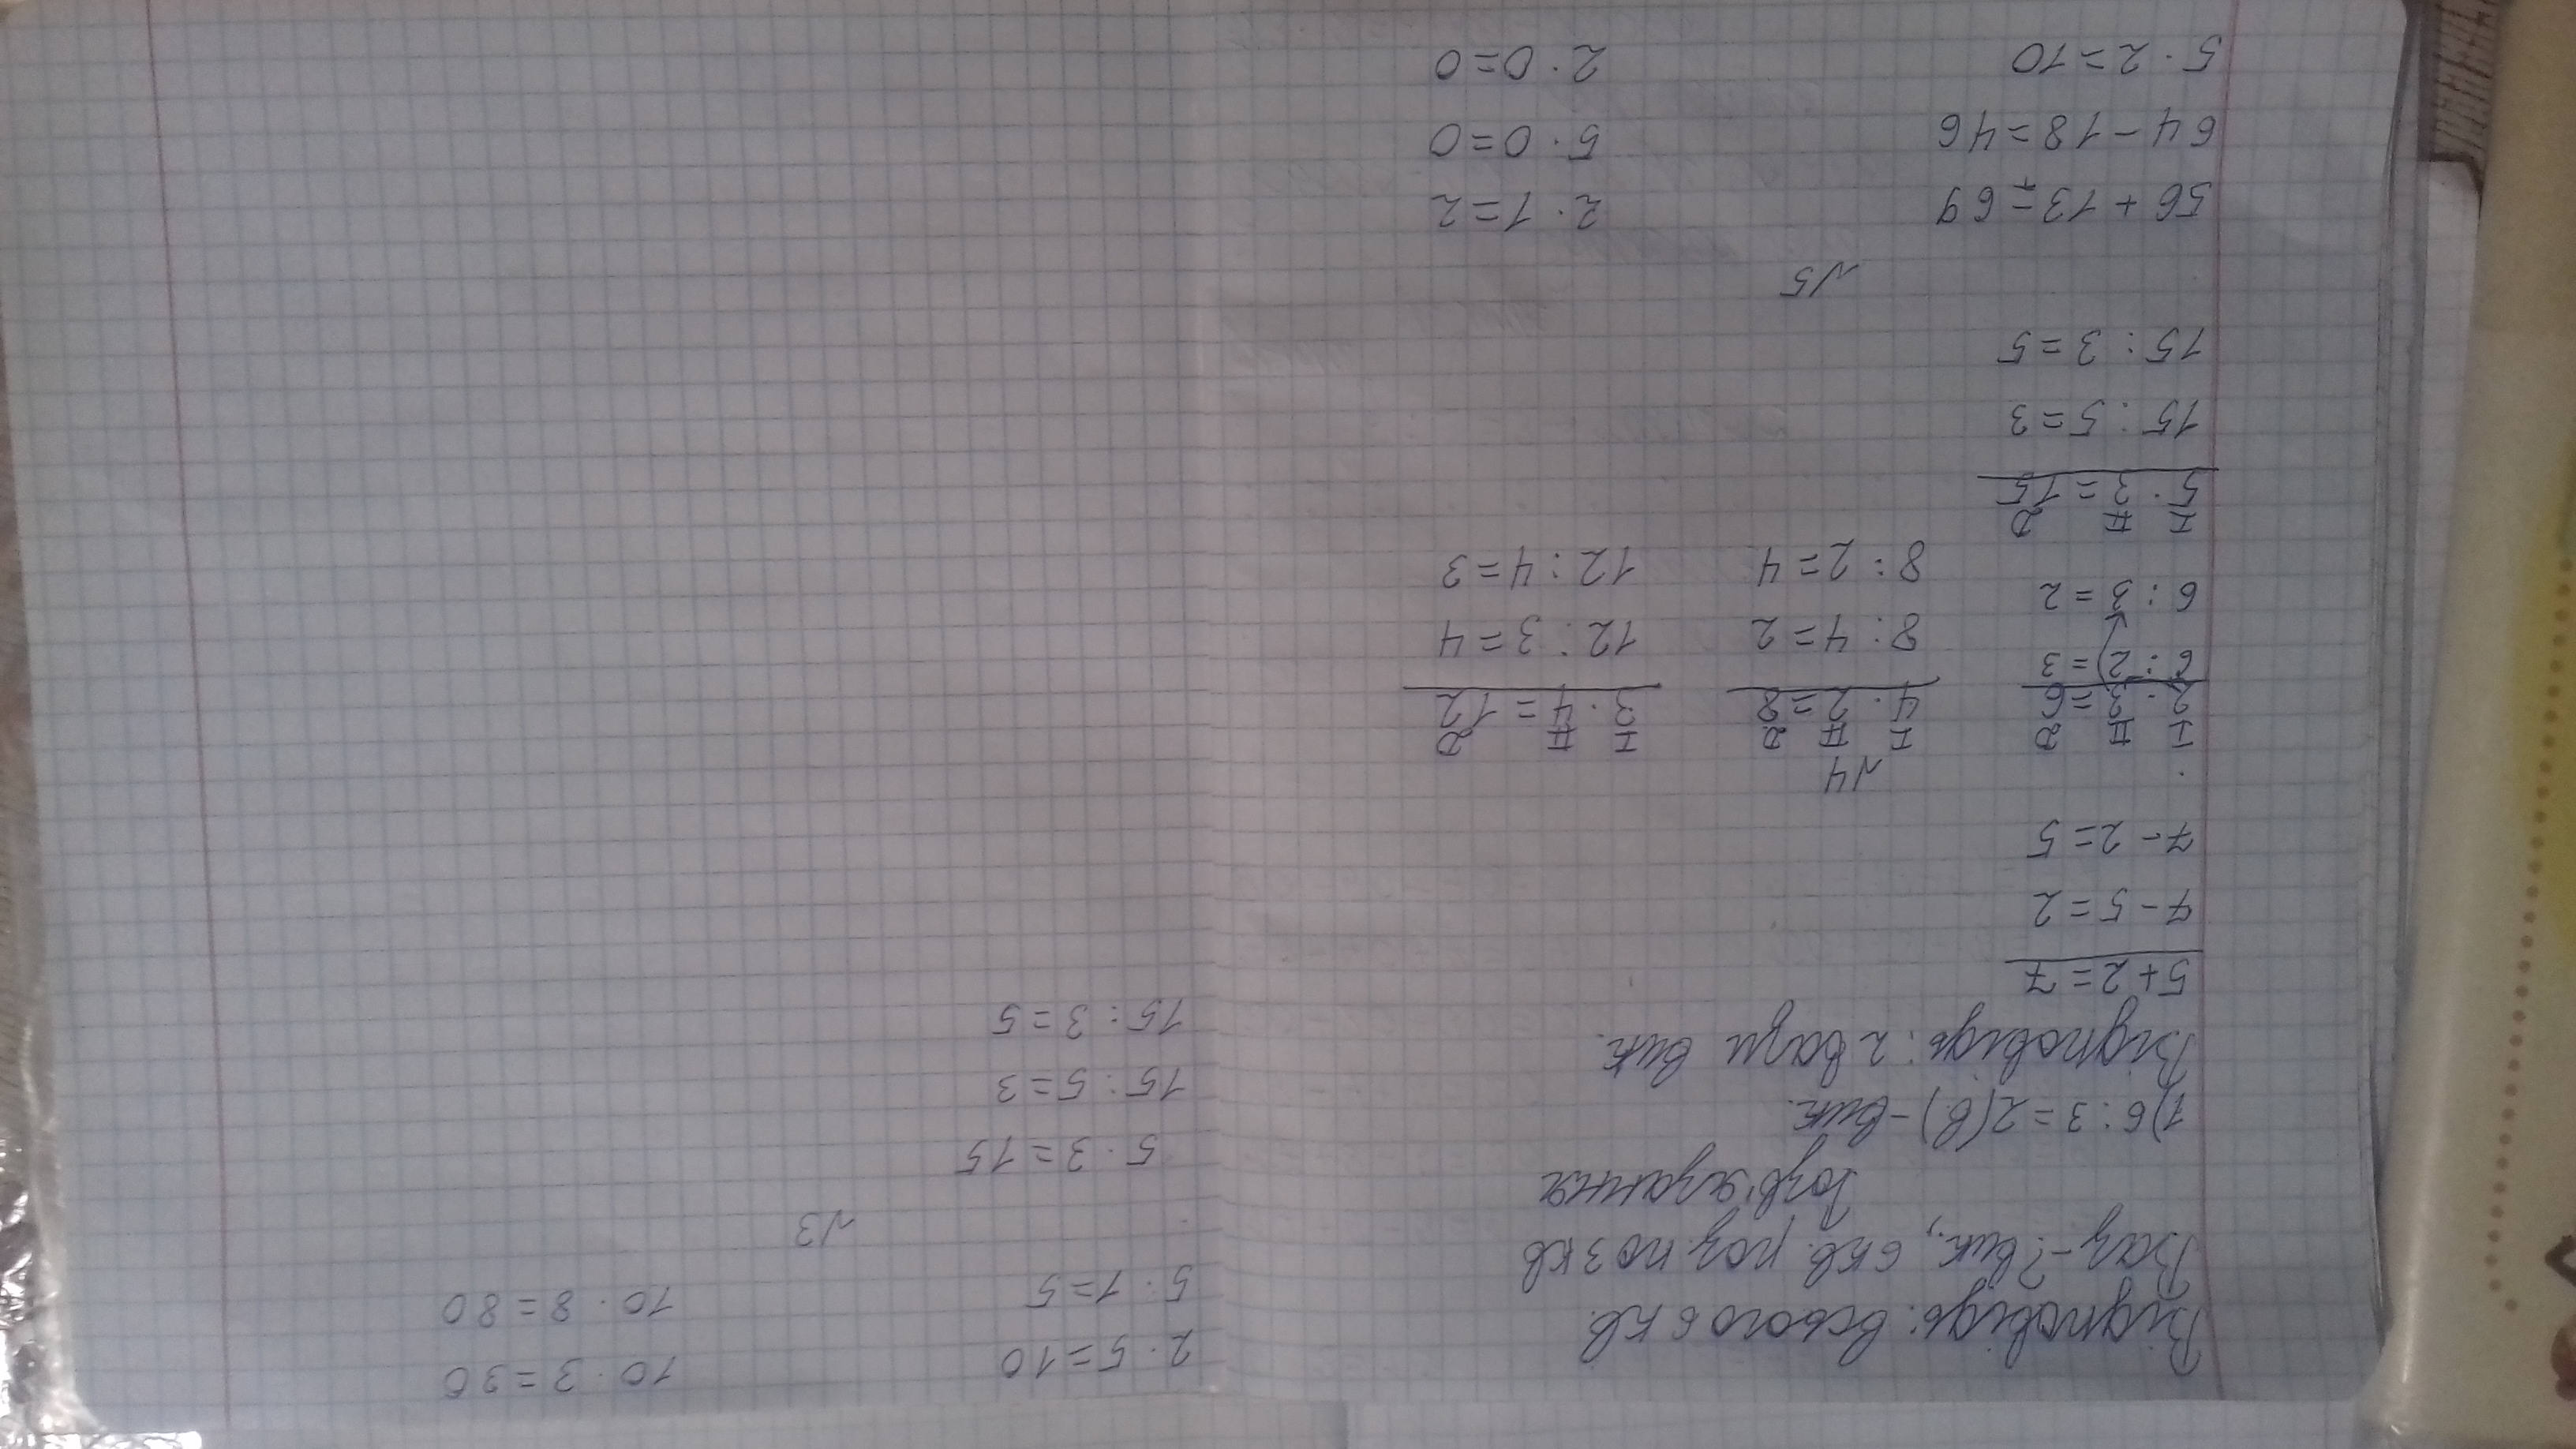 Відповідь: всього 6 кв.
Ваз - ? вик., 6 кв. роз. по 3 кв
Розв'язання
1) 6 : 3 = 2 (в) - вик.
Відповідь: 2 вази вик.
5 + 2 = 7
7 - 5 = 2
7 - 2 = 5
№4
I II D I II D I II D
2 · 3 = 6 4 · 2 = 8 3 · 4 = 12
6 : 2 = 3 8 : 4 = 2 12 : 3 = 4
6 : 3 = 2 8 : 2 = 4 12 : 4 = 3
I II D
5 · 3 = 15
15 : 5 = 3
15 : 3 = 5
№5
56 + 13 = 69 2 · 1 = 2
64 - 18 = 46 5 · 0 = 0
5 · 2 = 10 2 · 0 = 0
2 · 5 = 10 10 · 3 = 30
5 · 1 = 5 10 · 8 = 80
№3
5 · 3 = 15
15 : 5 = 3
15 : 3 = 5